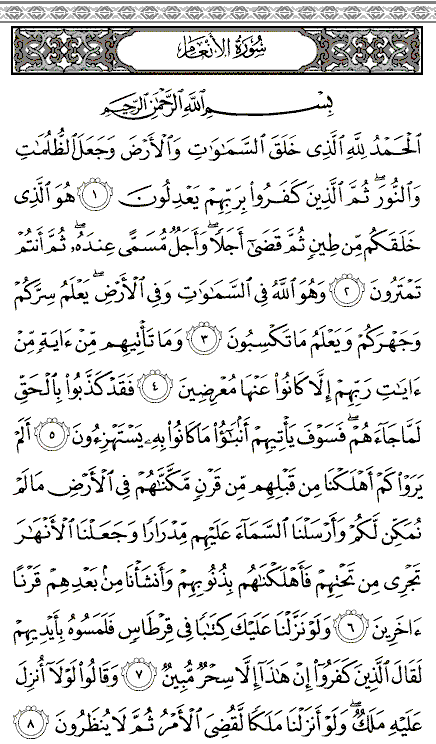 سُورَةُ الأَنْعَام
بِسْمِ اللَّهِ الرَّحْمَٰنِ الرَّحِيمِ
الْحَمْدُ لِلَّهِ الَّذِي خَلَقَ السَّمَاوَاتِ وَالْأَرْضَ وَجَعَلَ الظُّلُمَاتِ
وَالنُّورَ ۖ ثُمَّ الَّذِينَ كَفَرُوا بِرَبِّهِمْ يَعْدِلُونَ ١ هُوَ الَّذِي
خَلَقَكُم مِّن طِينٍ ثُمَّ قَضَىٰ أَجَلًا ۖ وَأَجَلٌ مُّسَمًّى عِندَهُ ۖ ثُمَّ أَنتُمْ
تَمْتَرُونَ ٢ وَهُوَ اللَّهُ فِي السَّمَاوَاتِ وَفِي الْأَرْضِ ۖ يَعْلَمُ سِرَّكُمْ
وَجَهْرَكُمْ وَيَعْلَمُ مَا تَكْسِبُونَ ٣ وَمَا تَأْتِيهِم مِّنْ ءَايَةٍ مِّنْ
ءَايَاتِ رَبِّهِمْ إِلَّا كَانُوا عَنْهَا مُعْرِضِينَ ٤ فَقَدْ كَذَّبُوا بِالْحَقِّ
لَمَّا جَاءَهُمْ ۖ فَسَوْفَ يَأْتِيهِمْ أَنبَٰٓؤُا مَا كَانُوا بِهِ يَسْتَهْزِءُونَ ٥ أَلَمْ
يَرَوْا كَمْ أَهْلَكْنَا مِن قَبْلِهِم مِّن قَرْنٍ مَّكَّنَّاهُمْ فِي الْأَرْضِ مَا لَمْ
نُمَكِّن لَّكُمْ وَأَرْسَلْنَا السَّمَاءَ عَلَيْهِم مِّدْرَارًا وَجَعَلْنَا الْأَنْهَارَ
تَجْرِي مِن تَحْتِهِمْ فَأَهْلَكْنَاهُم بِذُنُوبِهِمْ وَأَنشَأْنَا مِن بَعْدِهِمْ قَرْنًا
ءَاخَرِينَ ٦ وَلَوْ نَزَّلْنَا عَلَيْكَ كِتَابًا فِي قِرْطَاسٍ فَلَمَسُوهُ بِأَيْدِيهِمْ
لَقَالَ الَّذِينَ كَفَرُوا إِنْ هَٰذَا إِلَّا سِحْرٌ مُّبِينٌ ٧ وَقَالُوا لَوْلَا أُنزِلَ
عَلَيْهِ مَلَكٌ ۖ وَلَوْ أَنزَلْنَا مَلَكًا لَّقُضِيَ الْأَمْرُ ثُمَّ لَا يُنظَرُونَ ٨